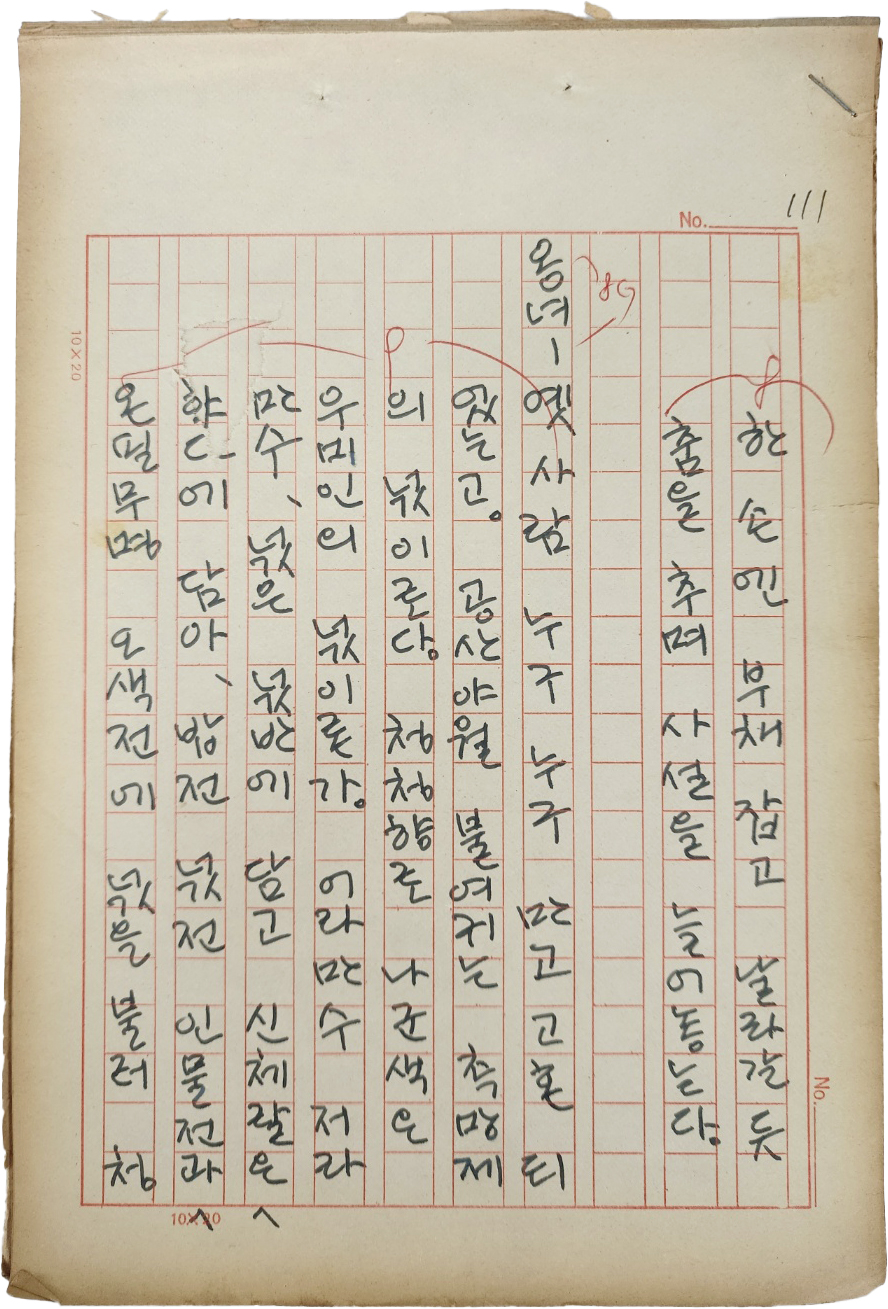 No. 111
한 손엔 부채 잡고 날라갈 듯
춤을 추며 사설을 늘어놓는다.
옹녀ー옛 사람 누구 누구 만고고혼 되
었는고。 공산야월 불여귀는 촉망제
의 넋이로다. 청청향로 나군색은
우미인의 넋이론가。 어라만수 저라
만수、 넋은 넋반에 담고 신체랄은
향다에 담아、 방전 넋전 인물전과
온필무명 오색전에 넋을 불러 청
10×20
10×20
No.